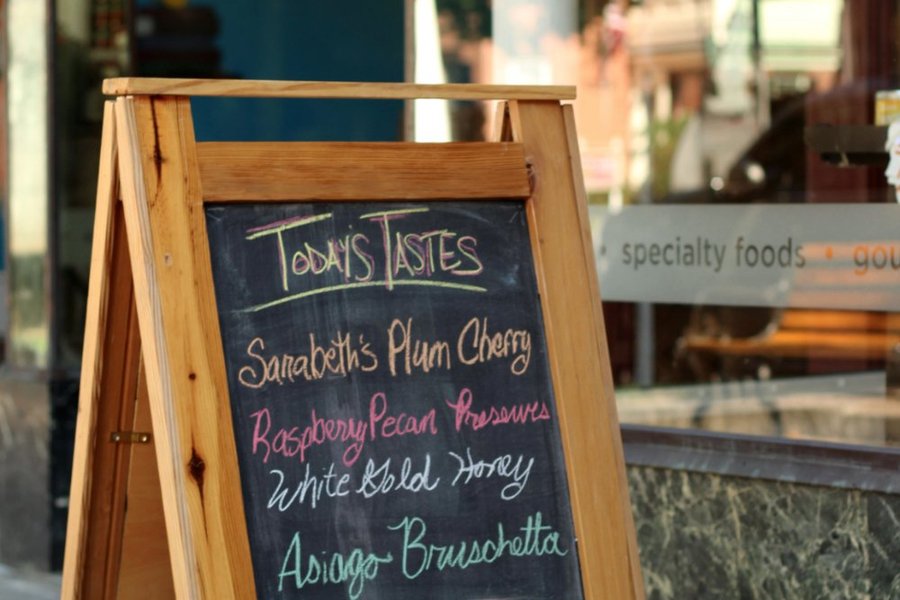 TODAY'S TASTES
Sarabeth's Plum Cherry
Raspbery Pecan Preserves
White Gold Honey
Asiago Bruschetta
• specialty foods • gou